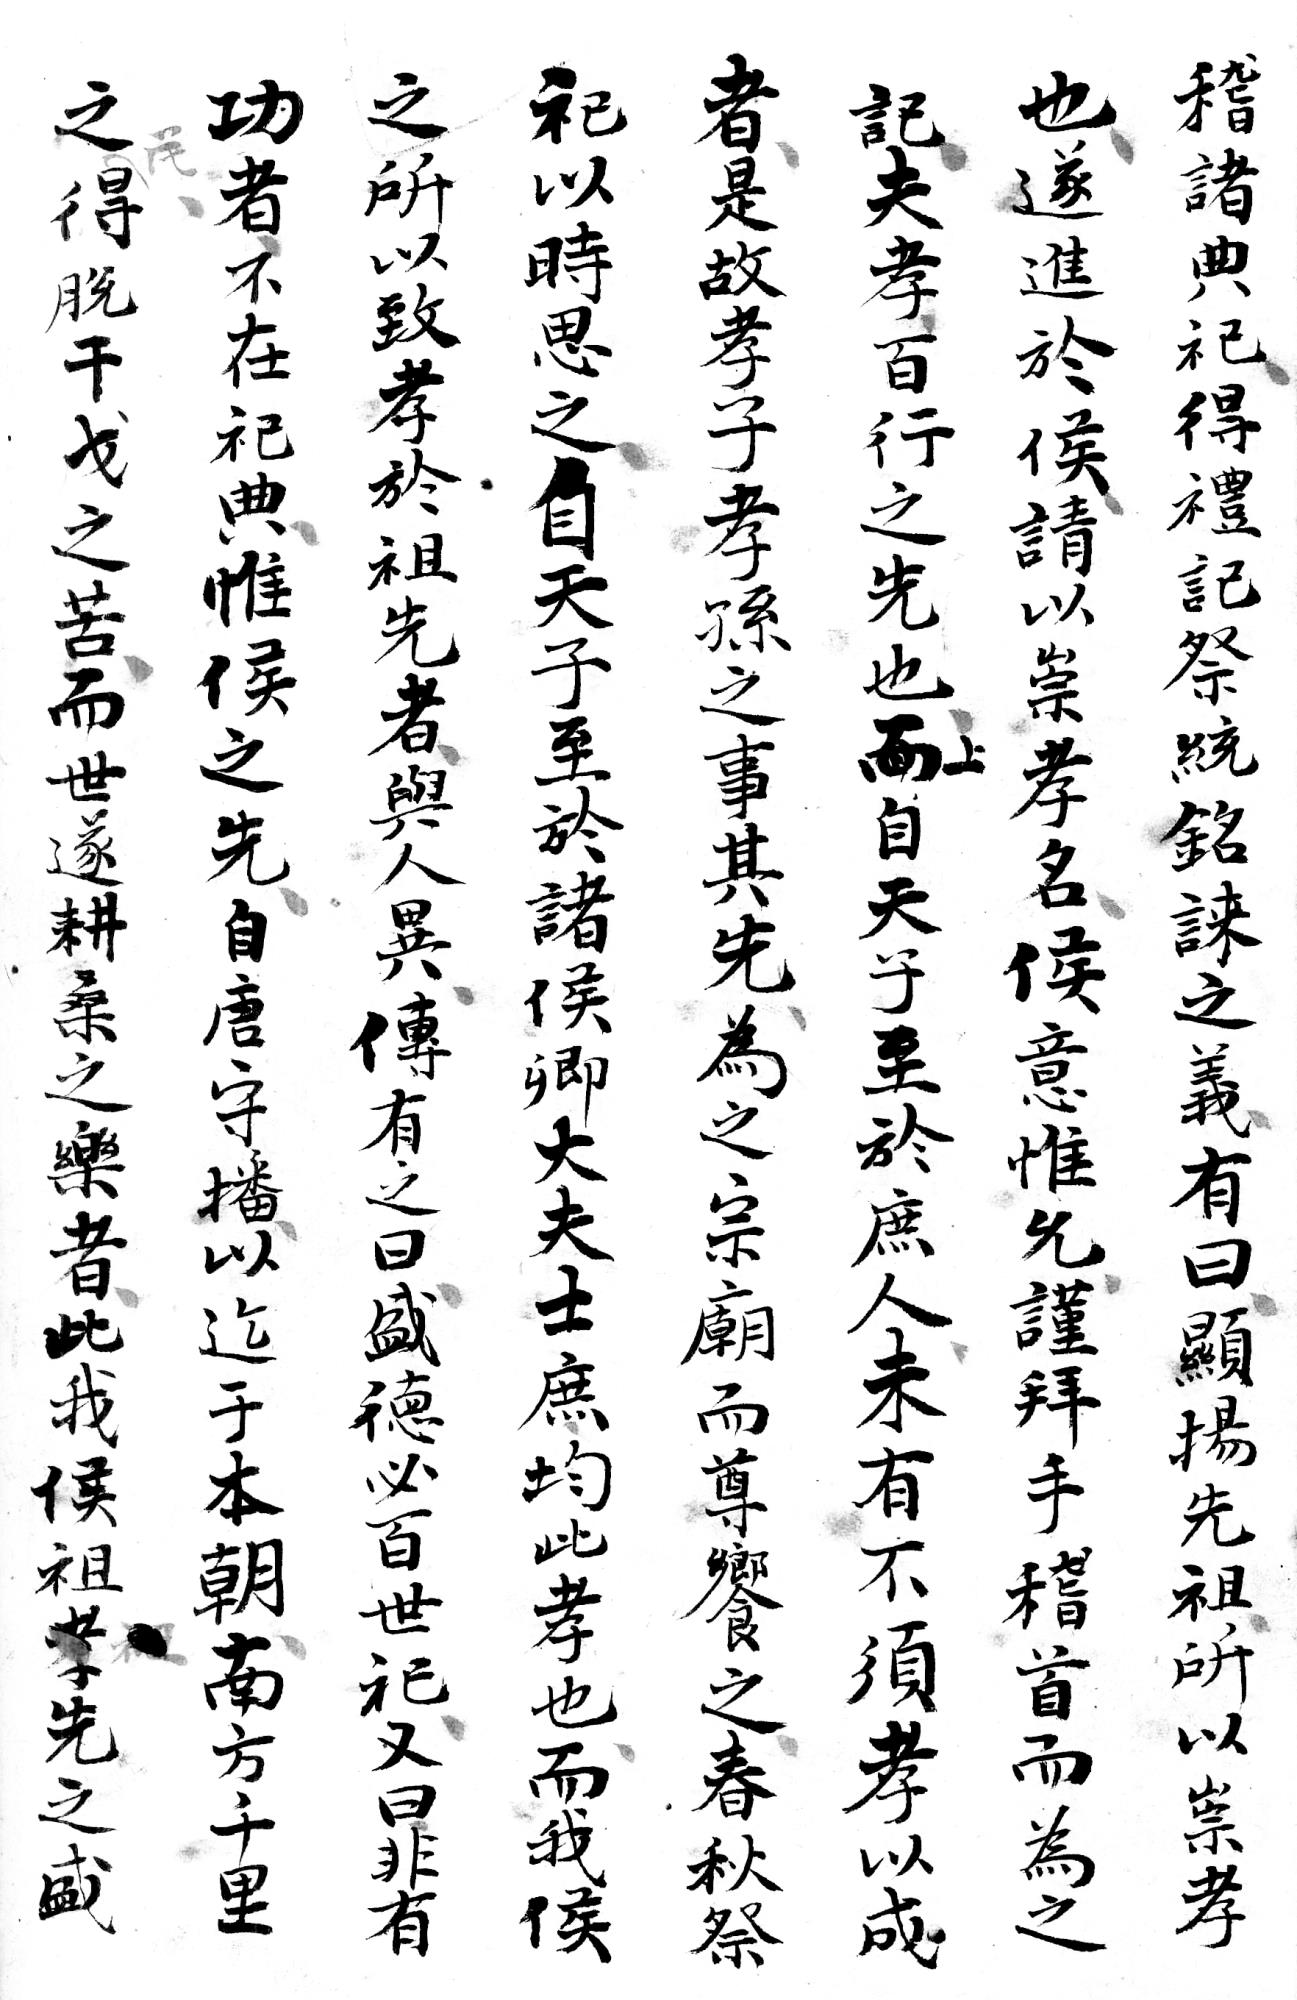 稽諸典祀得禮記祭統銘誄之義有曰顯揚先祖所以崇孝
也遂進於侯請以崇孝名侯意惟允謹拜手稽首而為之
記夫孝百行之先也上自天子至於庶人未有不須孝以成
者是故孝子孝孫之事其先為之宗廟而尊饗之春秋祭
祀以時思之自天子至於諸侯卿大夫士庶均此孝也而我侯
之所以致孝於祖先者與人異傳有之曰盛德必百世祀又曰非有
功者不在祀典惟侯之先自唐守播以迄于本朝南方千里
之民得脫干戈之苦而世遂耕桑之樂者此我侯祖先之盛